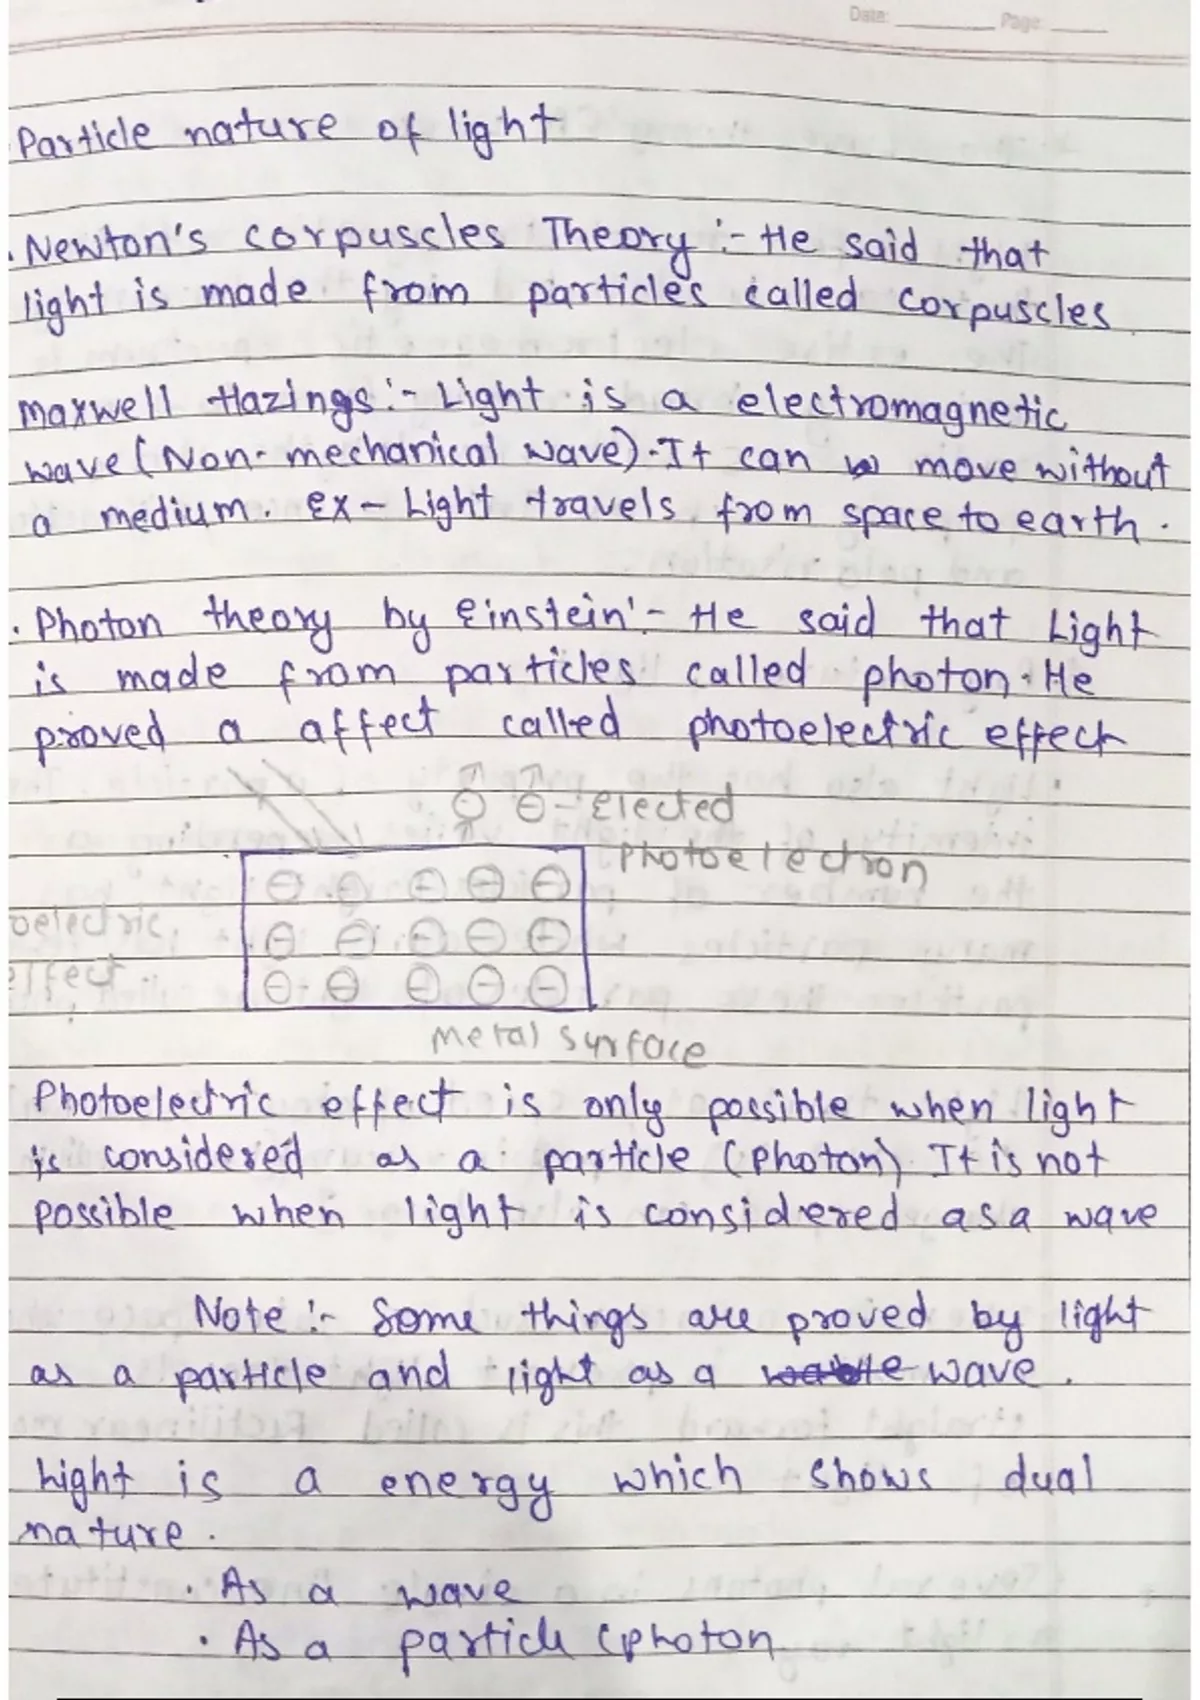 Date: Page:
Particle nature of light
· Newton's corpuscles Theory :- He said that
light is made from particles called corpuscles
maxwell Hazings :- Light is a electromagnetic
wave (Non-mechanical wave). It can move without
a medium. ex - Light travels from space to earth.
· Photon theory by Einstein :- He said that Light
is made from particles called photon. He
proved a affect called photoelectric effect
Elected
Photoelectron
oelectric
effect
metal surface
Photoelectric effect is only possible when light
is considered as a particle (photon). It is not
possible when light is considered as a wave
Note :- Some things are proved by light
as a particle and light as a wave.
Light is a energy which shows dual
nature.
· As a wave
· As a particle (photon